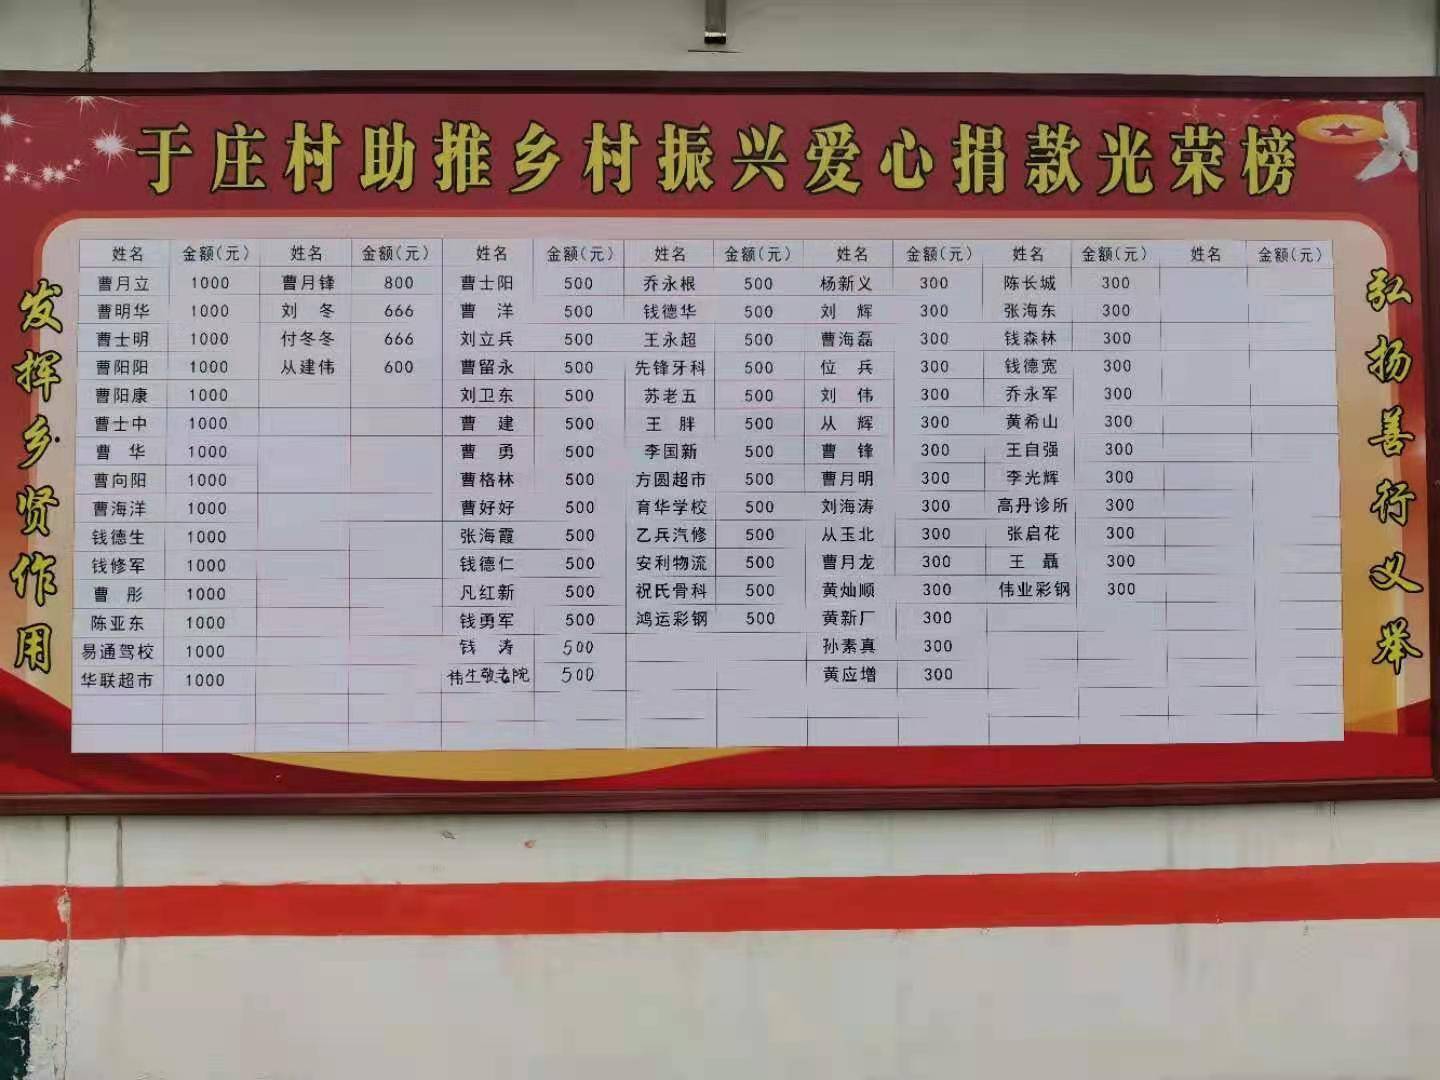 于庄村助推乡村振兴爱心捐款光荣榜
发挥乡贤作用
弘扬善行义举
姓名 金额(元) 姓名 金额(元) 姓名 金额(元) 姓名 金额(元) 姓名 金额(元) 姓名 金额(元) 姓名 金额(元)
曹月立 1000 曹月锋 800 曹士阳 500 乔永根 500 杨新义 300 陈长城 300
曹明华 1000 刘 冬 666 曹 洋 500 钱德华 500 刘 辉 300 张海东 300
曹士明 1000 付冬冬 666 刘立兵 500 王永超 500 曹海磊 300 钱森林 300
曹阳阳 1000 从建伟 600 曹留永 500 先锋牙科 500 位 兵 300 钱德宽 300
曹阳康 1000 刘卫东 500 苏老五 500 刘 伟 300 乔永军 300
曹士中 1000 曹 建 500 王 胖 500 从 辉 300 黄希山 300
曹 华 1000 曹 勇 500 李国新 500 曹 锋 300 王自强 300
曹向阳 1000 曹格林 500 方圆超市 500 曹月明 300 李光辉 300
曹海洋 1000 曹好好 500 育华学校 500 刘海涛 300 高丹诊所 300
钱德生 1000 张海霞 500 乙兵汽修 500 从玉北 300 张启花 300
钱修军 1000 钱德仁 500 安利物流 500 曹月龙 300 王 聶 300
曹 彤 1000 凡红新 500 祝氏骨科 500 黄灿顺 300 伟业彩钢 300
陈亚东 1000 钱勇军 500 鸿运彩钢 500 黄新厂 300
易通驾校 1000 钱 涛 500 孙素真 300
华联超市 1000 祎生敬老院 500 黄应增 300